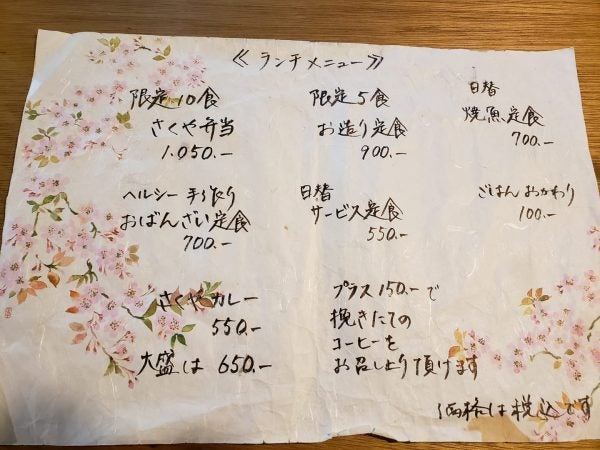 ≪ランチメニュー≫
限定10食
さくや弁当
1.050.-
限定5食
お造り定食
900.-
日替
焼魚定食
700.-
ヘルシー手作り
おばんざい定食
700.-
日替
サービス定食
550.-
ごはんおかわり
100.-
さくやカレー
550.-
大盛は 650.-
プラス150.-で
挽きたての
コーヒーを
お召し上り頂けます
価格は税込です